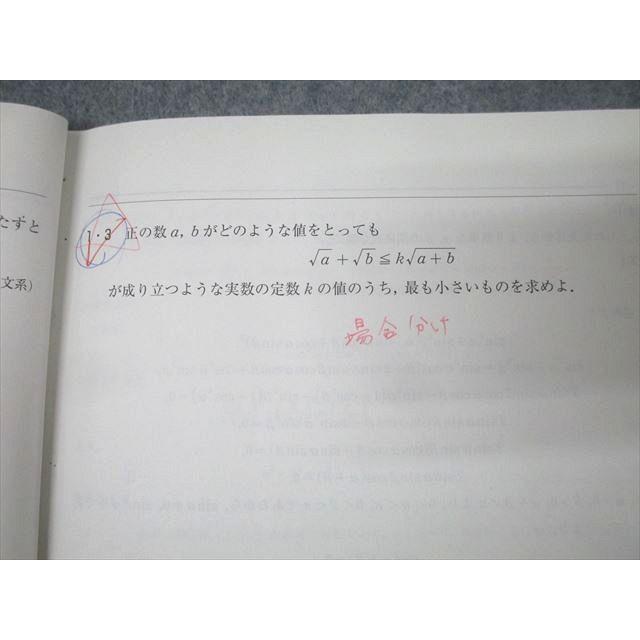 たずと
文系)
1・3 正の数 a, b がどのような値をとっても
√a + √b ≦ k√a + b
が成り立つような実数の定数 k の値のうち, 最も小さいものを求めよ.
場合分け